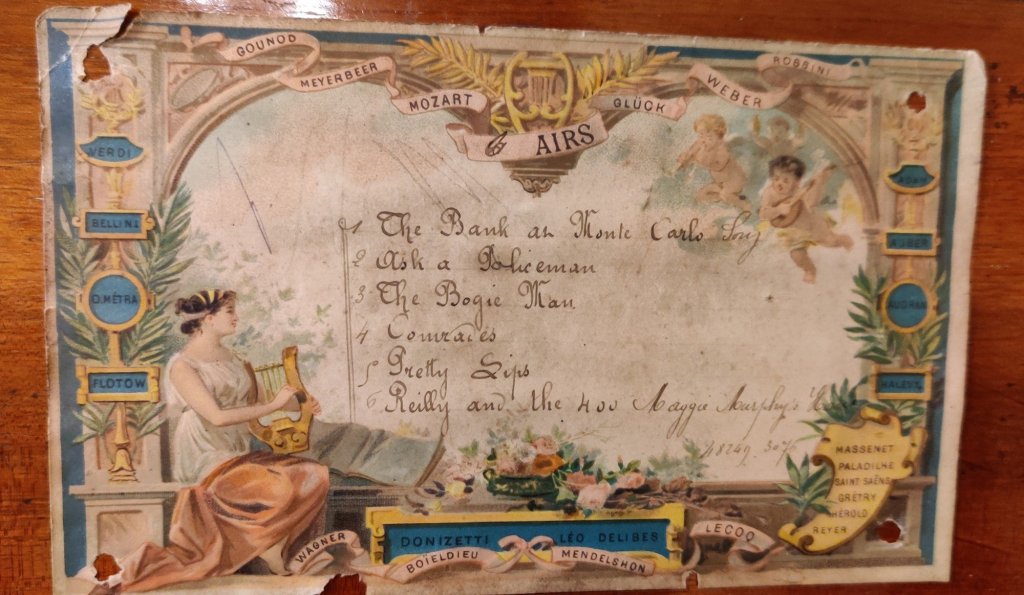 GOUNOD
MEYERBEER
MOZART
GLÜCK
WEBER
ROSSINI
6 AIRS
VERDI
BELLINI
O.MÉTRA
FLOTOW
ADAM
AUBER
AUDRAN
HALEVY
1 The Bank at Monte Carlo Song
2 Ask a Policeman
3 The Bogie Man
4 Comrades
5 Pretty Lips
6 Reilly and the 400 Maggie Murphy's
MASSENET
PALADILHE
SAINT SAËNS
GRÉTRY
HÉROLD
REYER
DONIZETTI LÉO DELIBES
WAGNER
BOÏELDIEU
MENDELSHON
LECOQ